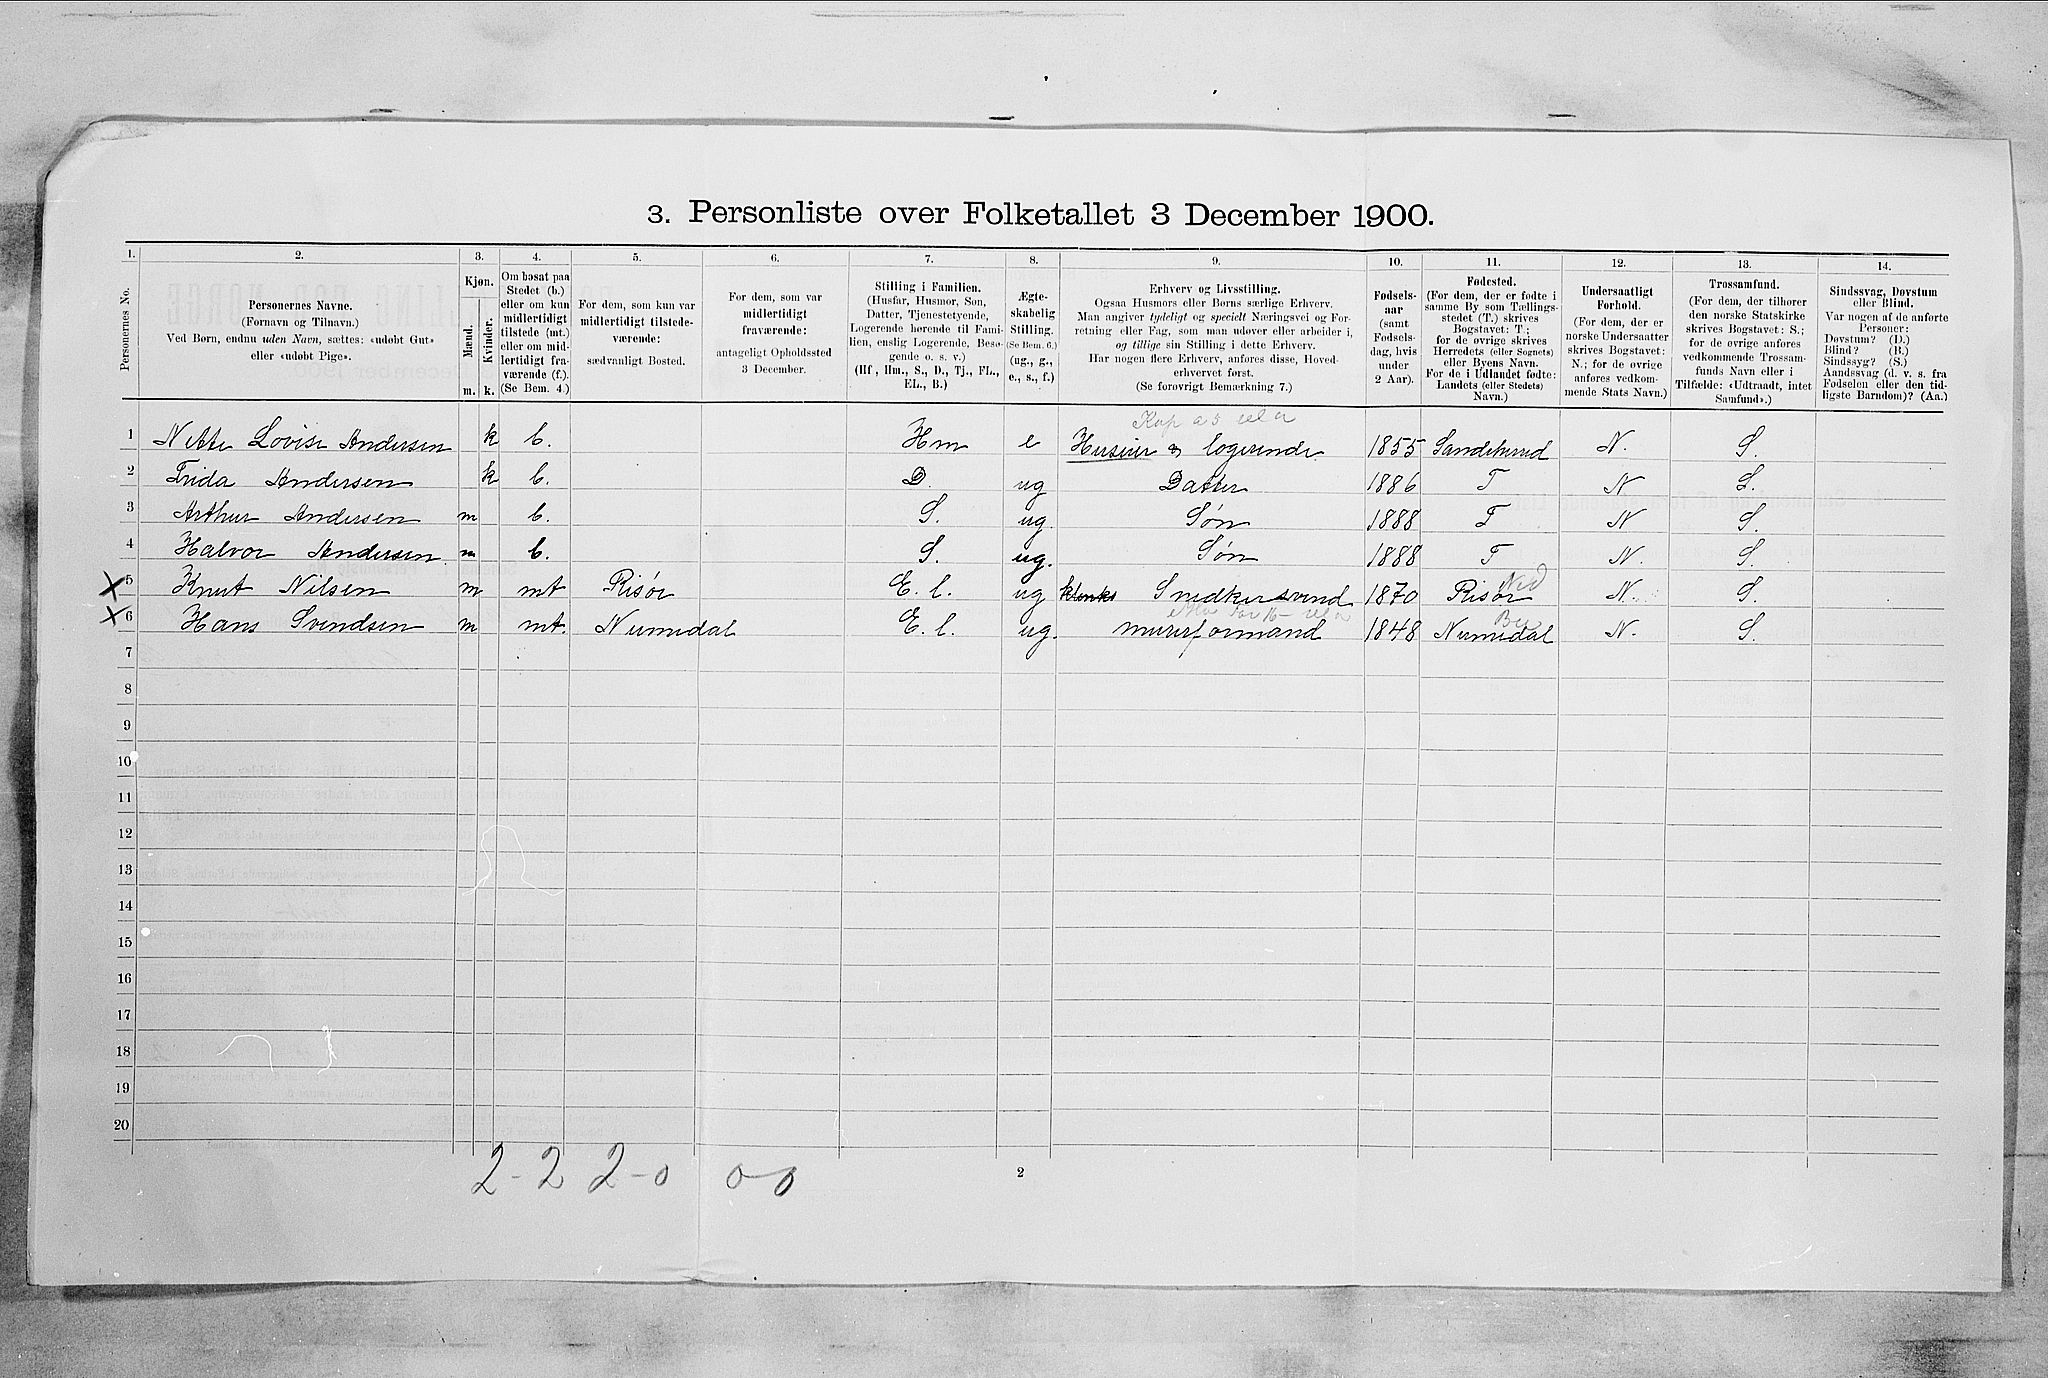 3. Personliste over Folketallet 3 December 1900.
1. 2. 3. 4. 5. 6. 7. 8. 9. 10. 11. 12. 13. 14.
Personernes No.
Personernes Navne.
(Fornavn og Tilnavn.)
Ved Børn, endnu uden Navn, sættes: «udøbt Gut»
eller «udøbt Pige».
Kjøn.
Mænd.
Kvinder.
m. k.
Om bosat paa
Stedet (b.)
eller om kun
midlertidigt
tilstede (mt.)
eller om mid-
lertidigt fra-
værende (f.)
(Se Bem. 4.)
For dem, som kun var
midlertidigt tilstede-
værende:
sædvanligt Bosted.
For dem, som var
midlertidigt
fraværende:
antageligt Opholdssted
3 December.
Stilling i Familien.
(Husfar, Husmor, Søn,
Datter, Tjenestetyende,
Logerende hørende til Fami-
lien, enslig Logerende, Besø-
gende o. s. v.)
(Hf., Hm., S., D., Tj., FL.,
EL., B.)
Ægte-
skabelig
Stilling.
(Se Bem. 6.)
(ug., g.,
e., s., f.)
Erhverv og Livsstilling.
Ogsaa Husmors eller Børns særlige Erhverv.
Man angiver tydeligt og specielt Næringsvei og For-
retning eller Fag, som man udøver eller arbeider i,
og tillige sin Stilling i dette Erhverv.
Har nogen flere Erhverv, anføres disse, Hoved-
erhvervet først.
(Se forøvrigt Bemærkning 7.)
Fødsels-
aar
(samt
Fødsels-
dag, hvis
under
2 Aar).
Fødested.
(For dem, der er fødte i
samme By som Tællings-
stedet (T.) skrives
Bogstavet: T.;
for de øvrige skrives
Herredets (eller Sognets)
eller Byens Navn.
For de i Udlandet fødte:
Landets (eller Stedets)
Navn.)
Undersaatligt
Forhold.
(For dem, der er
norske Undersaatter
skrives Bogstavet:
N.; for de øvrige
anføres vedkom-
mende Stats Navn.)
Trossamfund.
(For dem, der tilhører
den norske Statskirke
skrives Bogstavet: S.;
for de øvrige anføres
vedkommende Trossam-
funds Navn eller i
Tilfælde: «Udtraadt, intet
Samfund».)
Sindssvag, Døvstum
eller Blind.
Var nogen af de anførte
Personer:
Døvstum? (D.)
Blind? (B.)
Sindssyg? (S.)
Aandssvag (d. v. s. fra
Fødselen eller den tid-
ligste Barndom)? (Aa.)
1 Nette Lovise Andersen k b. Hm e Huseier & logerende 1855 Sandeherred N. S.
2 Frida Andersen k b. D. ug Datter 1886 T N S.
3 Arthur Andersen m b. S. ug. Søn 1888 T N S.
4 Halvor Andersen. m b. S. ug. Søn 1888 T N. S.
X 5 Knut Nilsen m mt Risør E. l. ug Snedkersvend 1870 Risør N. S.
X 6 Hans Svendsen m mt. Numedal E. l. ug. murerformand 1848 Numedal N. S.
7
8
9
10
11
12
13
14
15
16
17
18
19
20
2-2 2-0 0-0
2